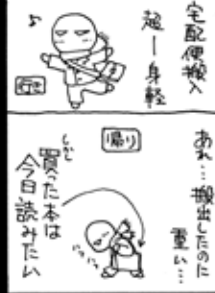 宅配便搬入
超ー身軽
♪
行き
あれ…搬出したのに
重い…
帰り
しかし
買った本は
今日、読みたい
ハァハァ